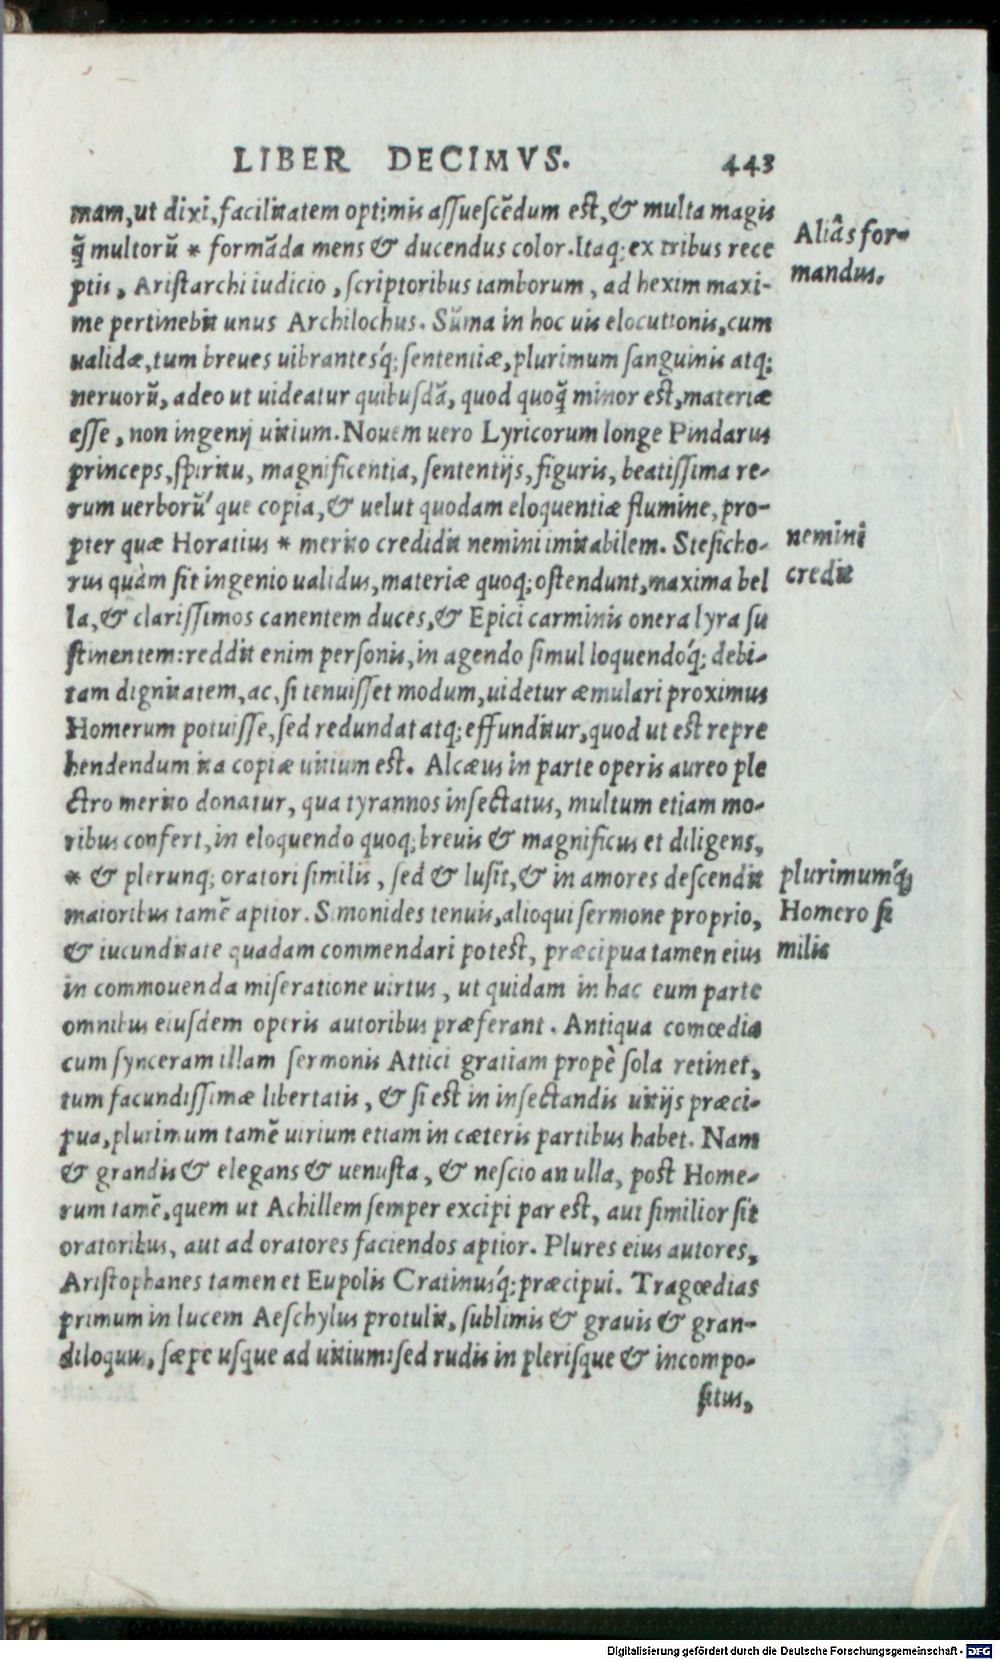 LIBER DECIMVS. 443
mam, ut dixi, facilitatem optimis aſſueſcēdum eſt, & multa magis
q̃ multorũ * formāda mens & ducendus color. Itaq; ex tribus rece
ptis, Ariſtarchi iudicio, ſcriptoribus iamborum, ad hexim maxi-
me pertinebit unus Archilochus. Sũma in hoc uis elocutionis, cum
ualidæ, tum breues uibrantesq́; ſententiæ, plurimum ſanguinis atq;
neruorũ, adeo ut uideatur quibuſdã, quod quoq̃ minor eſt, materiæ
eſſe, non ingenij uitium. Nouem uero Lyricorum longe Pindarus
princeps, ſpiritu, magnificentia, ſententijs, figuris, beatiſſima re-
rum uerborũ que copia, & uelut quodam eloquentiæ flumine, pro-
pter quæ Horatius * merito credidit nemini imitabilem. Steſicho-
rus quàm ſit ingenio ualidus, materiæ quoq; oſtendunt, maxima bel
la, & clariſſimos canentem duces, & Epici carminis onera lyra ſu
ſtinentem: reddit enim perſonis, in agendo ſimul loquendoq́; debi-
tam dignitatem, ac, ſi tenuiſſet modum, uidetur æmulari proximus
Homerum potuiſſe, ſed redundat atq; effunditur, quod ut eſt repre
hendendum ita copiæ uitium eſt. Alcæus in parte operis aureo ple
ctro merito donatur, qua tyrannos inſectatus, multum etiam mo-
ribus confert, in eloquendo quoq; breuis & magnificus et diligens,
* & plerunq; oratori ſimilis, ſed & luſit, & in amores deſcendit
maioribus tamẽ aptior. Simonides tenuis, alioqui ſermone proprio,
& iucunditate quadam commendari poteſt, præcipua tamen eius
in commouenda miſeratione uirtus, ut quidam in hac eum parte
omnibus eiuſdem operis autoribus præferant. Antiqua comœdia
cum ſynceram illam ſermonis Attici gratiam propè ſola retinet,
tum facundiſſimæ libertatis, & ſi eſt in inſectandis uitijs præci-
pua, plurimum tamẽ uirium etiam in cæteris partibus habet. Nam
& grandis & elegans & uenuſta, & neſcio an ulla, poſt Home-
rum tamẽ, quem ut Achillem ſemper excipi par eſt, aut ſimilior ſit
oratoribus, aut ad oratores faciendos aptior. Plures eius autores,
Ariſtophanes tamen et Eupolis Cratinusq́; præcipui. Tragœdias
primum in lucem Aeſchylus protulit, ſublimis & grauis & gran-
diloquus, ſæpe uſque ad uitium: ſed rudis in pleriſque & incompo-
ſitus,
Aliâs for-
mandus.
nemini
credit
plurimumq́;
Homero ſi
milis
Digitalisierung gefördert durch die Deutsche Forschungsgemeinschaft - DFG